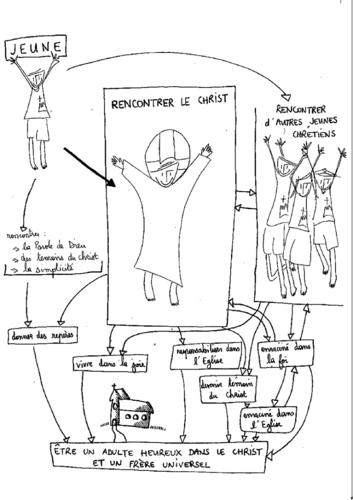 JEUNE
RENCONTRER LE CHRIST
RENCONTRER
d'AUTRES JEUNES
CHRETIENS
rencontrer :
→ la Parole de Dieu
→ des temoins du Christ
→ la simplicité
donner des repères
vivre dans la joie
responsabilises dans
l'Eglise
enraciné dans
la foi
devenir témoin
du Christ
enraciné dans
l'Eglise
ÊTRE UN ADULTE HEUREUX DANS LE CHRIST
ET UN FRÈRE UNIVERSEL